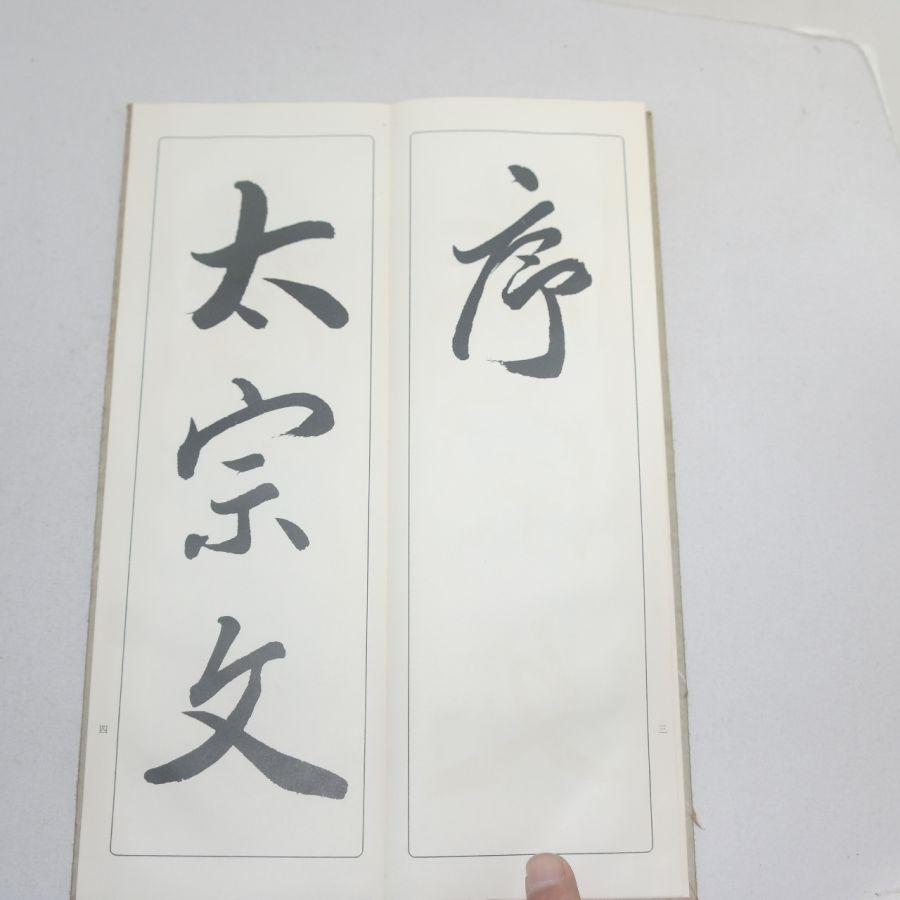 序
三
太宗文
四